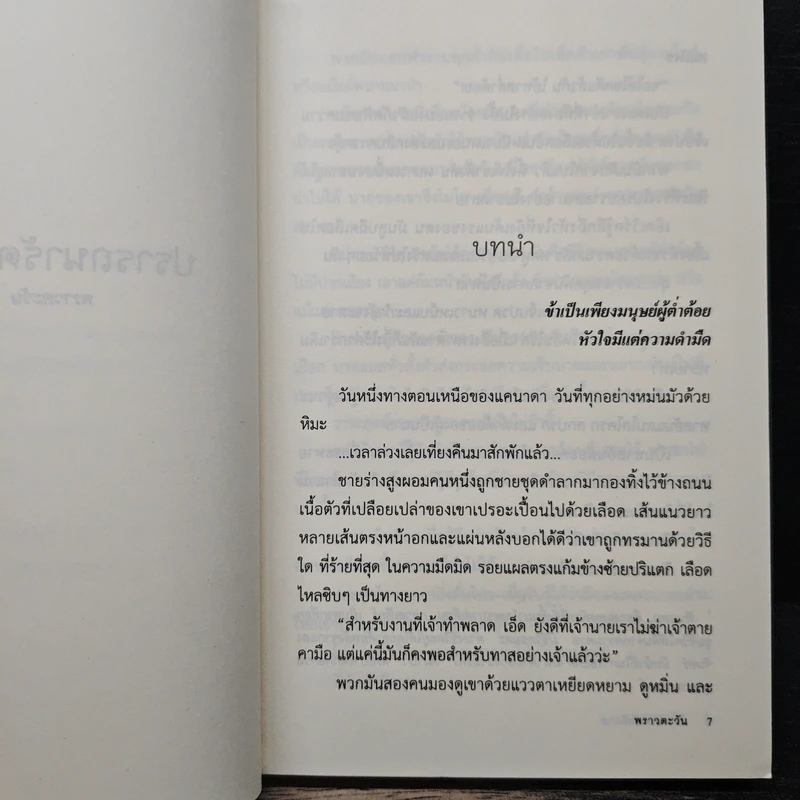 บทนำ
ข้าเป็นเพียงมนุษย์ผู้ต่ำต้อย
หัวใจมีแต่ความดำมืด
วันหนึ่งทางตอนเหนือของแคนาดา วันที่ทุกอย่างหม่นมัวด้วย
หิมะ
...เวลาล่วงเลยเที่ยงคืนมาสักพักแล้ว...
ชายร่างสูงผอมคนหนึ่งถูกชายชุดดำลากมากองทิ้งไว้ข้างถนน
เนื้อตัวที่เปลือยเปล่าของเขาเปรอะเปื้อนไปด้วยเลือด เส้นแนวยาว
หลายเส้นตรงหน้าอกและแผ่นหลังบอกได้ดีว่าเขาถูกทรมานด้วยวิธี
ใด ที่ร้ายที่สุด ในความมืดมิด รอยแผลตรงแก้มข้างซ้ายปริแตก เลือด
ไหลซิบๆ เป็นทางยาว
“สำหรับงานที่เจ้าทำพลาด เอ็ด ยังดีที่เจ้านายเราไม่ฆ่าเจ้าตาย
คามือ แต่แค่นี้มันก็คงพอสำหรับทาสอย่างเจ้าแล้วว่ะ”
พวกมันสองคนมองดูเขาด้วยแววตาเหยียดหยาม ดูหมิ่น และ
พราวตะวัน 7